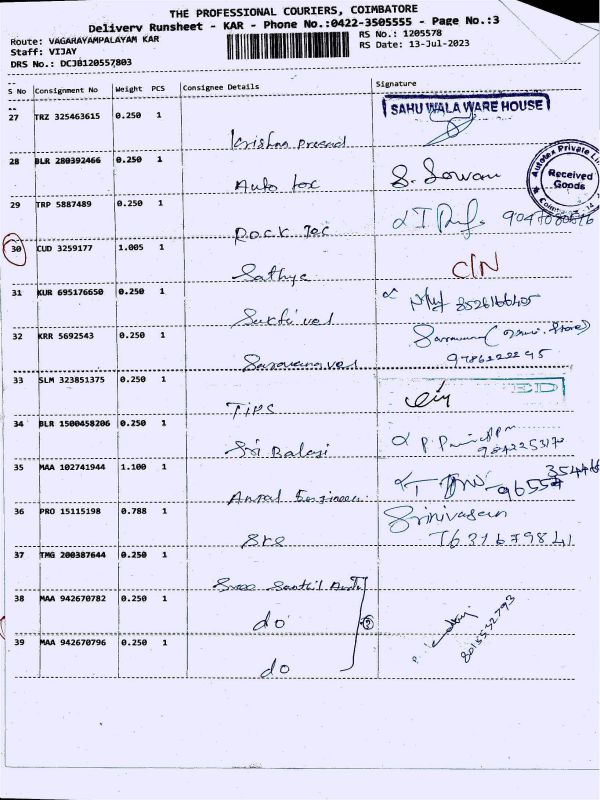 THE PROFESSIONAL COURIERS, COIMBATORE
Delivery Runsheet - KAR - Phone No.:0422-3505555 - Page No.:3
Route: VAGARAYAMPALAYAM KAR
RS No.: 1205578
Staff: VIJAY
RS Date: 13-Jul-2023
DRS No.: DCJB120557803
S No Consignment No Weight PCS Consignee Details Signature
SAHU WALA WARE HOUSE
27 TRZ 325463615 0.250 1
Krishna Prasad
28 BLR 280392466 0.250 1
Auto tex
Autotex Private
Received
Goods
29 TRP 5887489 0.250 1
Rock Tec
30 CUD 3259177 1.005 1
Sathya C/N
31 KUR 695176650 0.250 1
Sakthi vel 8526166405
32 KRR 5692543 0.250 1
Saravanavel 9786222295
33 SLM 323851375 0.250 1
TIPS
34 BLR 1500458206 0.250 1
Sri Balaji
35 MAA 102741944 1.100 1
36 PRO 15115198 0.788 1
Srinivasan
SRS 7631679841
37 TMG 200387644 0.250 1
Sree Santhil
38 MAA 942670782 0.250 1
do 2
39 MAA 942670796 0.250 1
do